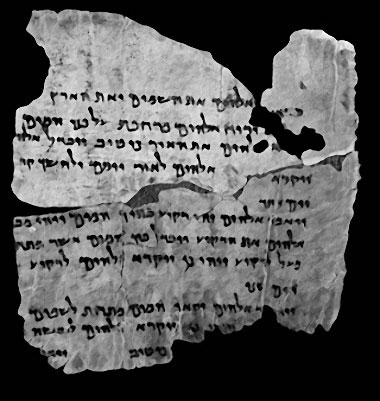 אלהים את השמים ואת הארץ
ורוח אלהים מרחפת על פני המים
אלהים את האור כי טוב ויבדל אלה
אלהים לאור יומם ולחשך קר
ויקרא
יום אחד
ויאמר אלהים יהי רקיע בתוך המים ויהי מב
אלהים את הרקיע ויבדל בין המים אשר מתח
מעל לרקיע ויהי כן ויקרא אלהים לרקיע
יום שני
אלהים יקוו המים מתחת לשמים
כן ויקרא אלהים ליבשה
כי טוב